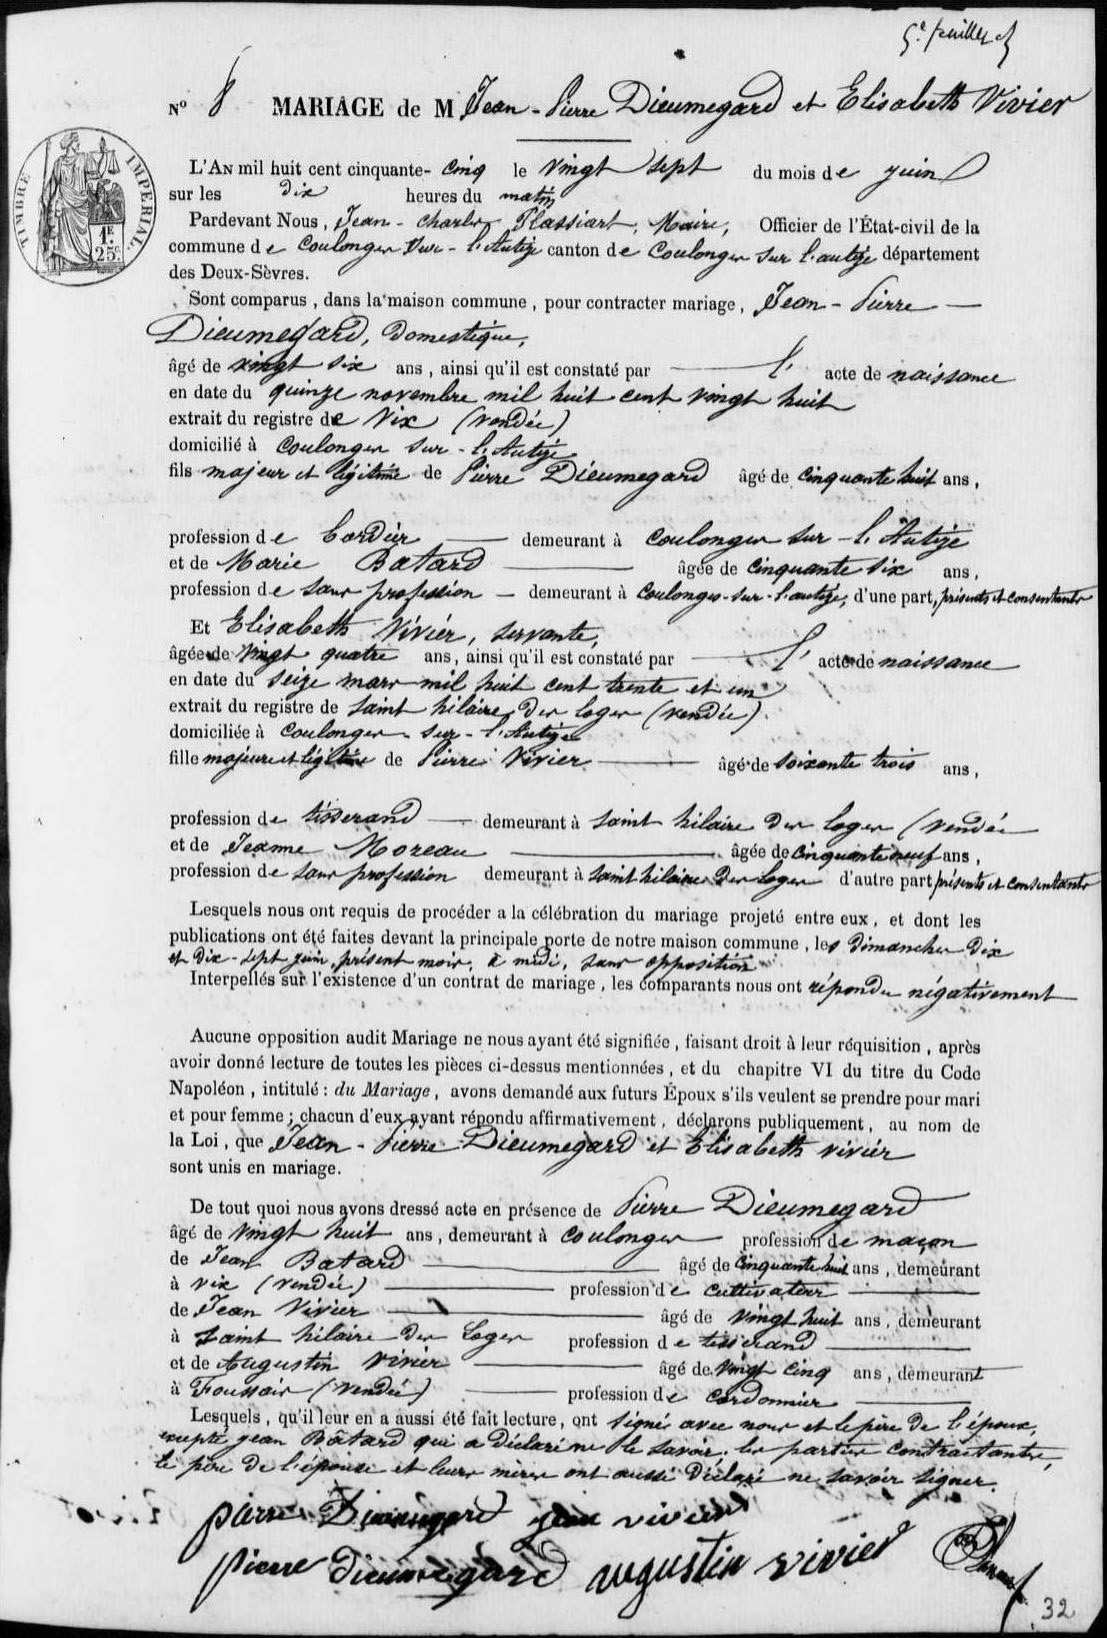 5e feuillet
N° 8 MARIAGE de M Jean-Pierre Dieumegard et Elisabeth Vivier
TIMBRE IMPERIAL.
1F
25c
L'AN mil huit cent cinquante-cinq le vingt sept du mois de juin
sur les dix heures du matin
Pardevant Nous, Jean-Charles Plassiart, Maire, Officier de l'État-civil de la
commune de Coulonges sur-l'Autize canton de Coulonges sur l'autize département
des Deux-Sèvres.
Sont comparus, dans la maison commune, pour contracter mariage, Jean-Pierre
Dieumegard, Domestique,
âgé de vingt six ans, ainsi qu'il est constaté par l' acte de naissance
en date du quinze novembre mil huit cent vingt huit
extrait du registre de Vix (vendée)
domicilié à Coulonges sur-l'Autize
fils majeur et légitime de Pierre Dieumegard âgé de cinquante huit ans,
profession de Cordier demeurant à Coulonges sur-l'Autize
et de Marie Batard âgée de cinquante six ans,
profession de sans profession demeurant à Coulonges-sur-l'autize, d'une part, présents et consentants
Et Elisabeth Vivier, servante,
âgée de vingt quatre ans, ainsi qu'il est constaté par l' acte de naissance
en date du seize mars mil huit cent trente et un
extrait du registre de saint hilaire des loges (vendée).
domiciliée à Coulonges sur-l'Autize
fille majeure et légitime de Pierre Vivier âgé de soixante trois ans,
profession de tisserand demeurant à saint hilaire des loges (vendée
et de Jeanne Moreau âgée de cinquante neuf ans,
profession de sans profession demeurant à saint hilaire des loges d'autre part présents et consentants
Lesquels nous ont requis de procéder a la célébration du mariage projeté entre eux, et dont les
publications ont été faites devant la principale porte de notre maison commune, les dimanches dix
et dix-sept juin, présent mois, à midi, sans opposition
Interpellés sur l'existence d'un contrat de mariage, les comparants nous ont répondu négativement
Aucune opposition audit Mariage ne nous ayant été signifiée, faisant droit à leur réquisition, après
avoir donné lecture de toutes les pièces ci-dessus mentionnées, et du chapitre VI du titre du Code
Napoléon, intitulé : du Mariage, avons demandé aux futurs Époux s'ils veulent se prendre pour mari
et pour femme ; chacun d'eux ayant répondu affirmativement, déclarons publiquement, au nom de
la Loi, que Jean-Pierre Dieumegard et Elisabeth vivier
sont unis en mariage.
De tout quoi nous avons dressé acte en présence de Pierre Dieumegard
âgé de vingt huit ans, demeurant à Coulonges profession de maçon
de Jean Batard âgé de cinquante huit ans, demeurant
à vix (vendée) profession de cultivateur
de Jean Vivier âgé de vingt huit ans, demeurant
à saint hilaire des Loges profession de tisserand
et de Augustin Vivier âgé de vingt cinq ans, demeurant
à Foussais (vendée) profession de cordonnier
Lesquels, qu'il leur en a aussi été fait lecture, ont signé avec nous et le père de l'époux,
excepté jean Bâtard qui a déclaré ne le savoir, les parties contractantes,
le père de l'épouse et leurs mères ont aussi déclaré ne savoir signer.
pierre Dieumegard jean vivier
pierre dieumegard augustin vivier
32